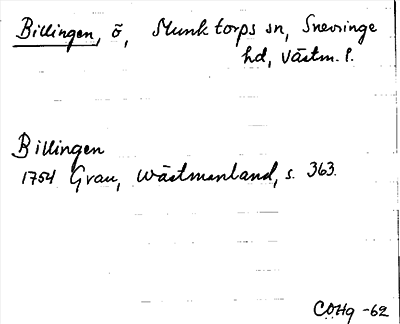 Billingen, ö, Munktorps sn, Snevringe
hd, Västm. l.
Billingen
1754 Grau, Wästmanland, s. 363.
COHq -62